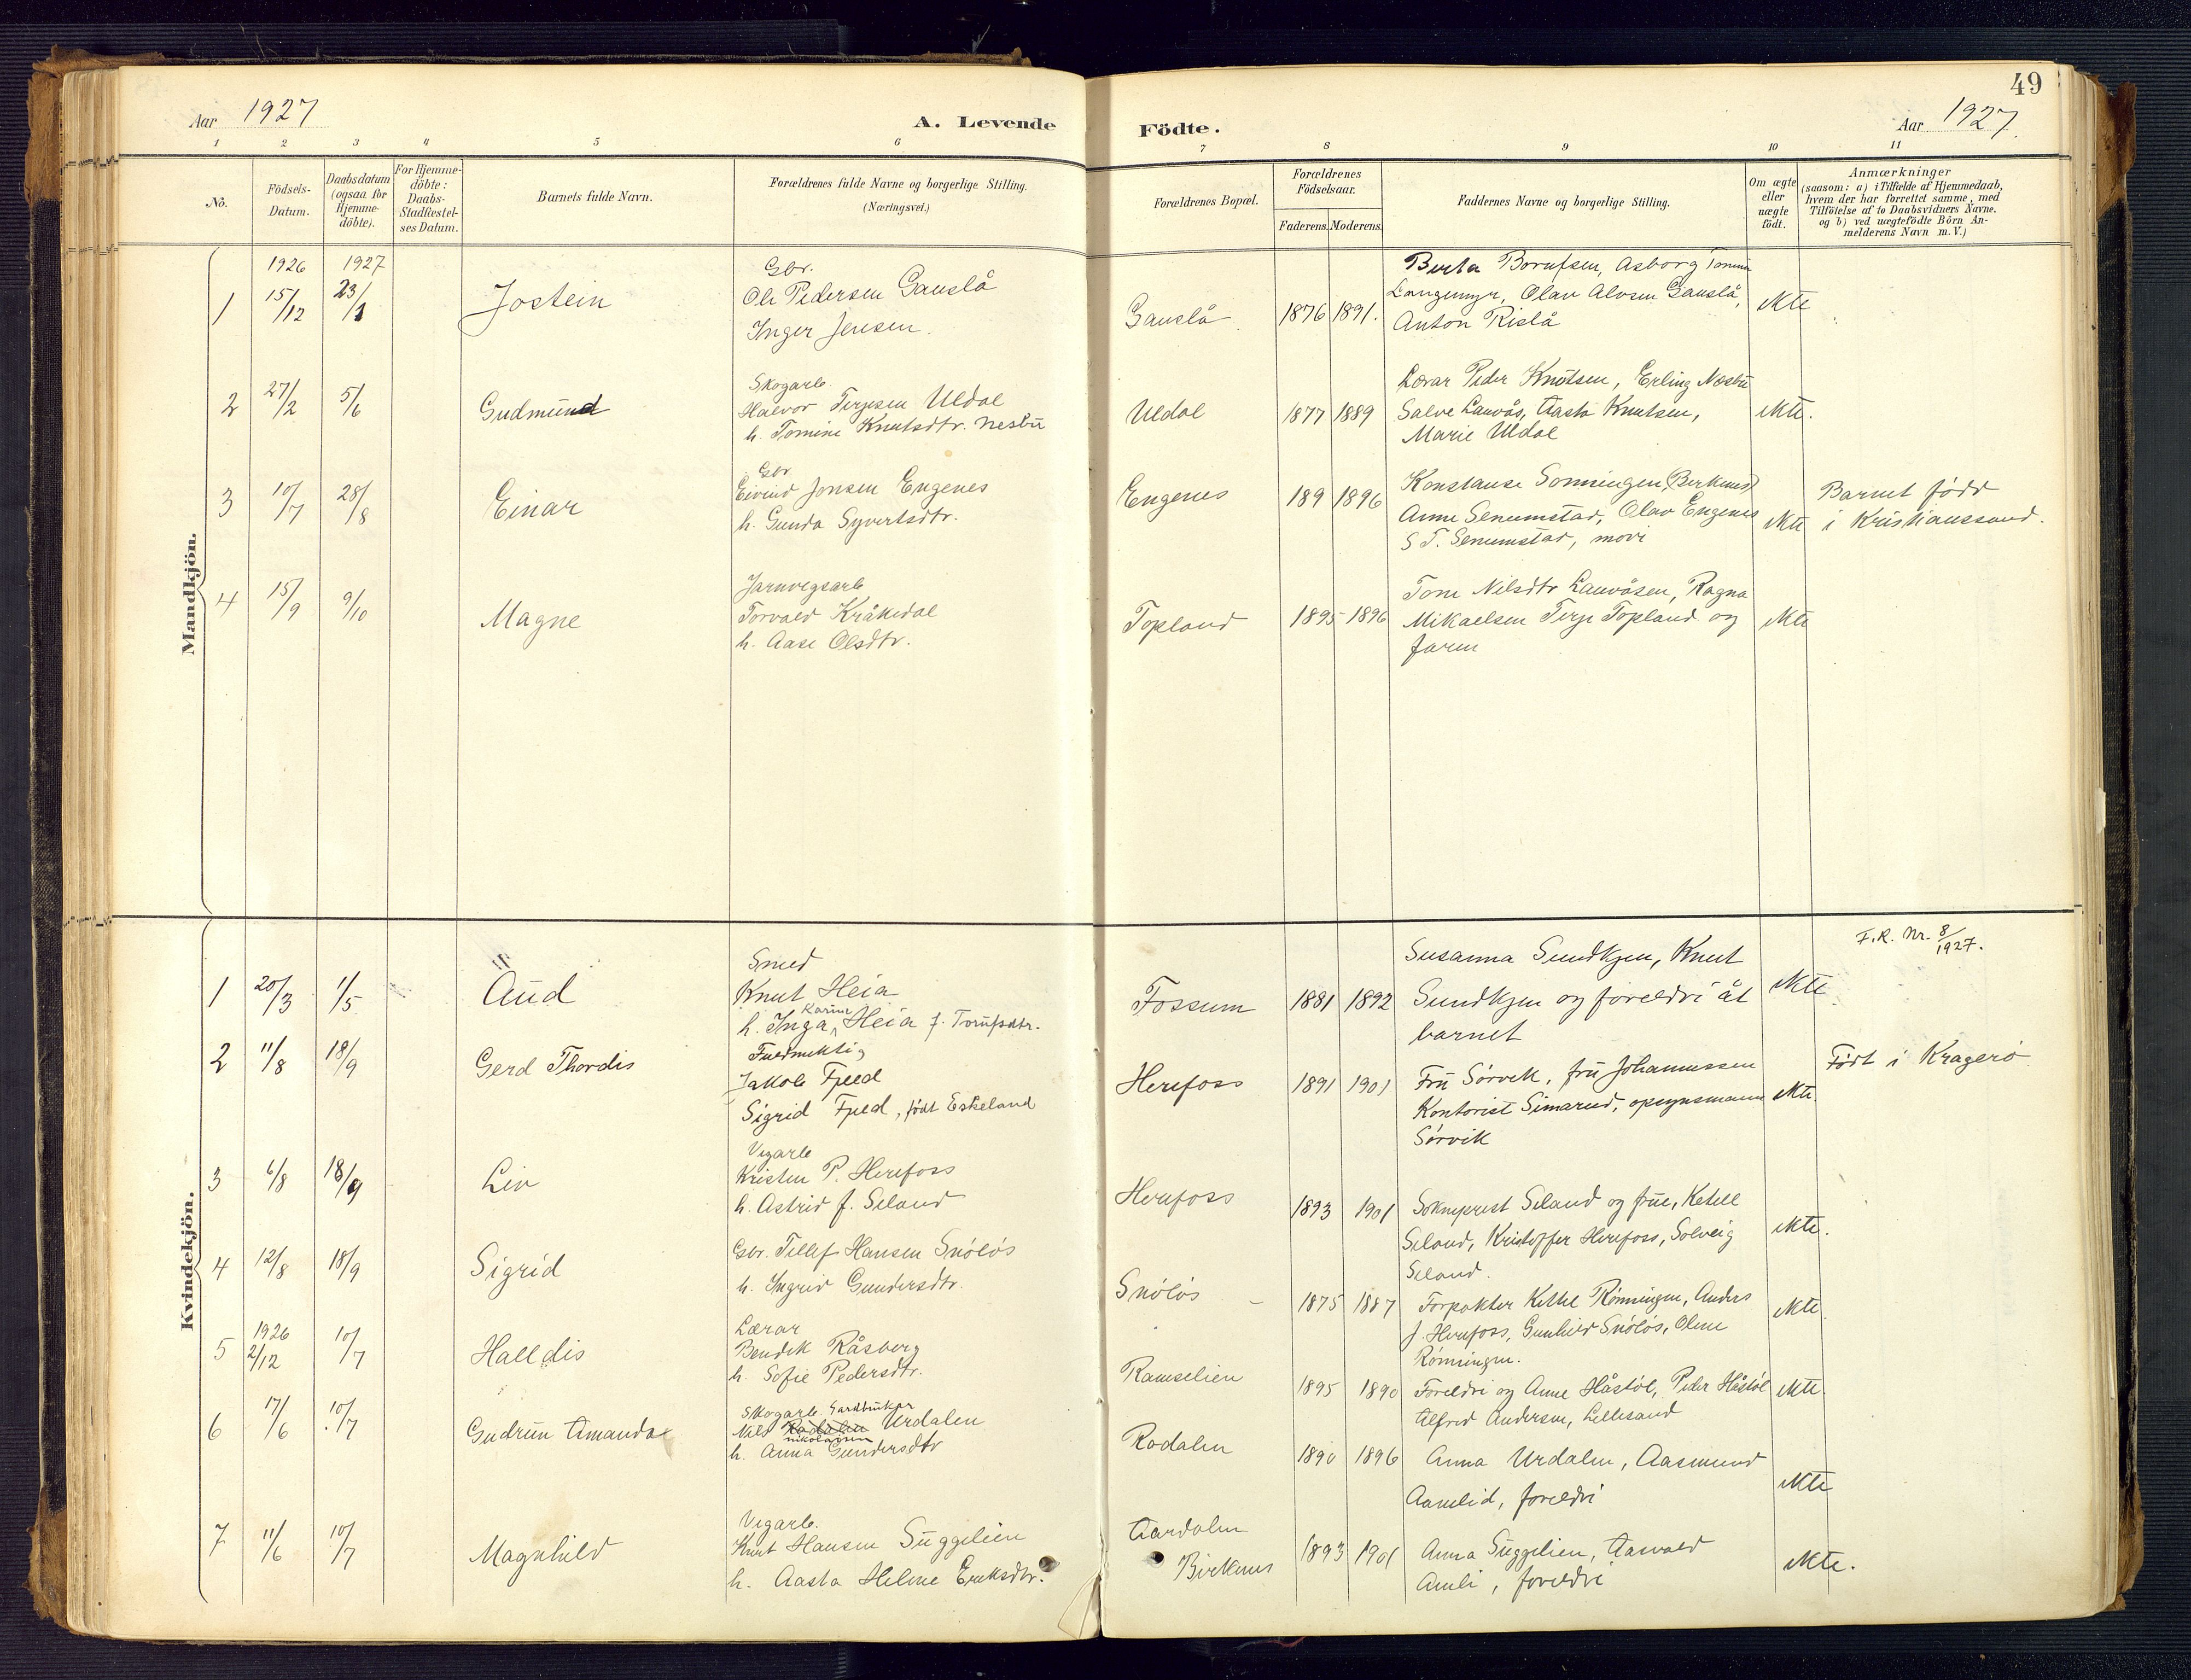 49
Aar 1927
A. Levende Födte.
Aar 1927.
1 2 3 4 5 6 7 8 9 10 11
No.
Födsels-Datum.
Daabsdatum (ogsaa for Hjemme-döbte).
For Hjemme-döbte: Daabs-Stadfæstel-ses Datum.
Barnets fulde Navn.
Forældrenes fulde Navne og borgerlige Stilling.
(Næringsvei.)
Forældrenes Bopæl.
Forældrenes Födselsaar.
Faderens. Moderens.
Faddernes Navne og borgerlige Stilling.
Om ægte eller uægte födt.
Anmærkninger
(saasom: a) i Tilfælde af Hjemmedaab,
hvem der har forrettet samme, med
Tilföielse af to Daabsvidners Navne,
og b) ved uægtefödte Börn An-
melderens Navn m. V.)
Mandkjön.
1926 1927
1 15/12 23/1 Jostein
Gbr.
Ole Pedersen Gauslå
Inger Jensen.
Gauslå 1876 1891.
Berta Bornfsen, Asborg
Langemyr, Olav Alvsen Gauslå,
Anton Rislå
ekte
2 27/2 5/6 Gudmund
Skogarb.
Halvor Terjesen Uldal
h. Tomine Knutsdtr. Nesbü
Uldal 1877 1889
Lærar Peder Knutsen, Erling Næsbü
Salve Lauvås, Aasta Knutsen,
Marie Uldal
ekte.
3 10/7 28/8 Einar
Gbr
Eivind Jonsen Engenes
h. Gunda Syvertsdtr.
Engenes 189 1896
Konstanse Sonningen (Berknes)
Anne Senumstad, Olav Engenes
S T. Senumstad, mori
ekte
Barnet född
i Kristianssand.
4 15/9 9/10 Magne
Jarnvegsarb
Torvald Kråkedal
h. Aase Olsdtr.
Topland 1895 1896
Tone Nilsdtr Lauvåsen, Ragna
Mikaelsen Terje Topland og
faren
ekte
Kvindekjön.
F.R. Nr. 8/1927.
1 20/3 1/5 Aud
Smed
Knut Heia
Karine
h. Inga Heia f. Torufsdtr.
Fossum 1881 1892
Susanna Sundkjen, Knut
Sundkjen og foreldri åt
barnet
ekte
2 11/8 18/9 Gerd Thordis
Fuldmektig
Jakob Fjeld
Sigrid Fjeld, født Eskeland
Herefoss 1891 1901
Frü Sørvik, frü Johannessen
Kontorist Simarud, opsynsmann
Sørvik
ekte.
Född i Kragerø
3 6/8 18/9 Liv
Vegarb
Kristen P. Herefoss
h. Astrid f. Seland
Herefoss 1893 1901
Sokneprest Seland og frue, Ketell
Seland, Kristoffer Herefoss, Solveig
Seland.
ekte.
4 12/8 18/9 Sigrid
Gbr. Tellef Hansen Snöløs
h. Ingrid Gundersdtr.
Snöløs 1875 1887
Forpakter Kittel Rønningen, Anders
J. Herefoss, Gunhild Snöløs, Olene
Rønningen.
ekte
1926
5 2/12 10/7 Halldis
Lærar
Bendik Råsberg
h. Sofie Pedersdtr.
Ramselien 1895 1890
Foreldri og Anne Håstöl, Peder Håstöl
Alfred Andersen, Lillesand
ekte.
6 17/6 10/7 Gudrün Amanda
Skogarb. Gardbruker
Nils Rodalen Urdalen
nikolaisen
h. Anna Gundersdtr
Rodalen 1890 1896
Anna Urdalen, Aasmund
Aamlid, foreldri
ekte
7 11/6 10/7 Magnhild
Vegarb.
Knut Hansen Süggelien
h. Aasta Helene Eriksdtr.
Aardalen
Birkenes 1893 1901
Anna Süggelien, Aasvald
Amli, foreldri
ekte.